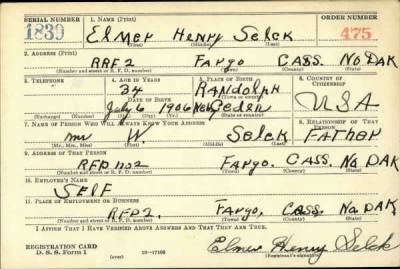 SERIAL NUMBER 1. NAME (Print) ORDER NUMBER
1839 ELMER HENRY SELCK 475
(First) (Middle) (Last)
2. ADDRESS (Print)
RRF2 FARGO CASS. No. DAK
(Number and street or R. F. D. number) (Town) (County) (State)
3. TELEPHONE 4. AGE IN YEARS 5. PLACE OF BIRTH 6. COUNTRY OF CITIZENSHIP
34 RANDOLPH
DATE OF BIRTH (Town or county)
July 6 1906 U S A
(Exchange) (No.) (Mo.) (Day) (Yr.) (State or country)
7. NAME OF PERSON WHO WILL ALWAYS KNOW YOUR ADDRESS 8. RELATIONSHIP OF THAT PERSON
Mr W. SELCK FATHER
(Mr., Mrs., Miss) (First) (Middle) (Last)
9. ADDRESS OF THAT PERSON
RFD no 2 FARGO. CASS. No. DAK
(Number and street or R. F. D. number) (Town) (County) (State)
10. EMPLOYER'S NAME
SELF
11. PLACE OF EMPLOYMENT OR BUSINESS
RFD 2. FARGO. CASS. No. DAK.
(Number and street or R. F. D. number) (Town) (County) (State)
I AFFIRM THAT I HAVE VERIFIED ABOVE ANSWERS AND THAT THEY ARE TRUE.
REGISTRATION CARD
D. S. S. Form 1 (over) 16—17105 Elmer Henry Selck
(Registrant's signature)